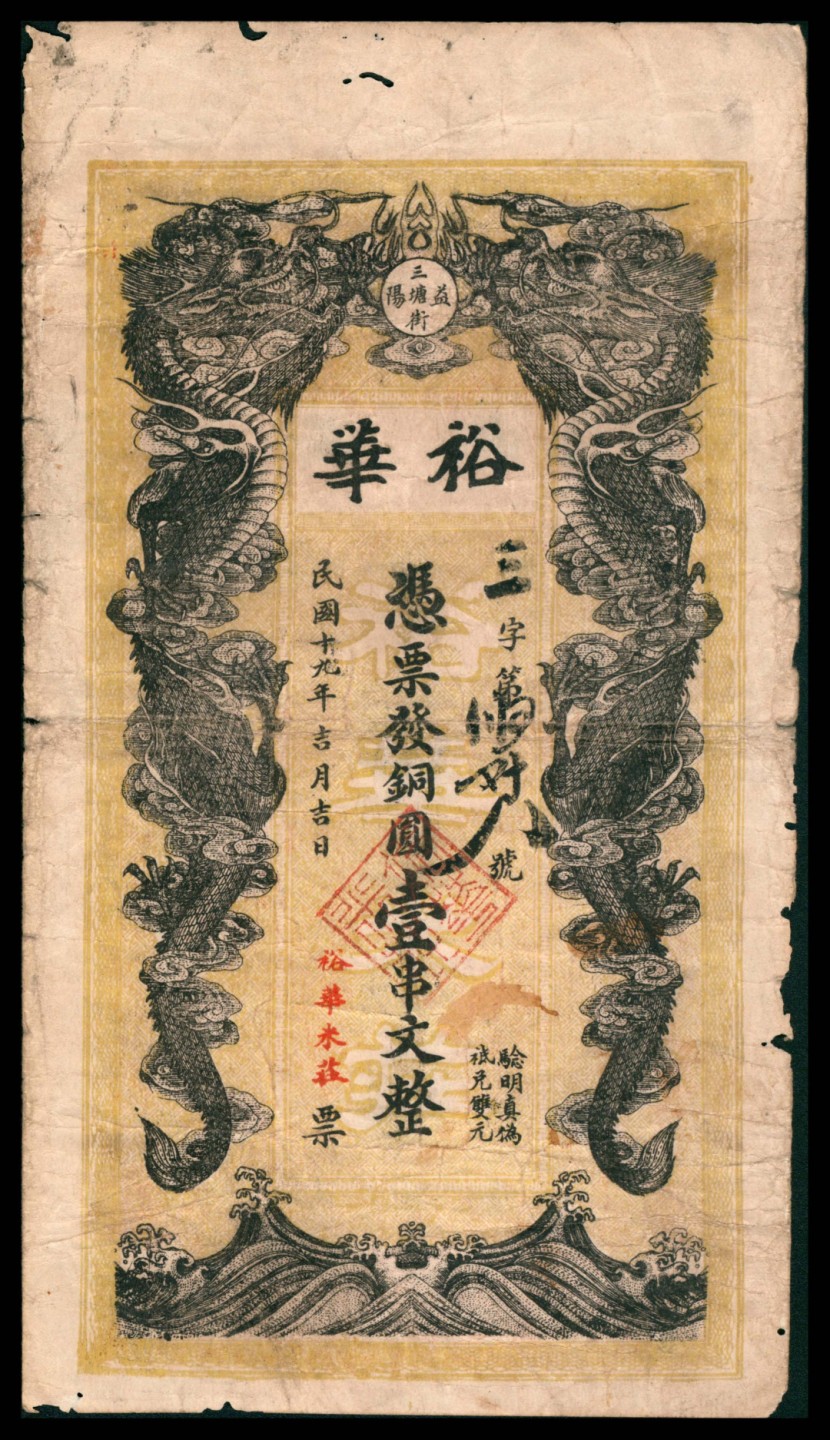 益陽
三塘街
裕華
三字第八號
騐明真偽
祗兑雙元
憑票發銅圓壹串文整
民國十九年吉月吉日
裕華米莊票